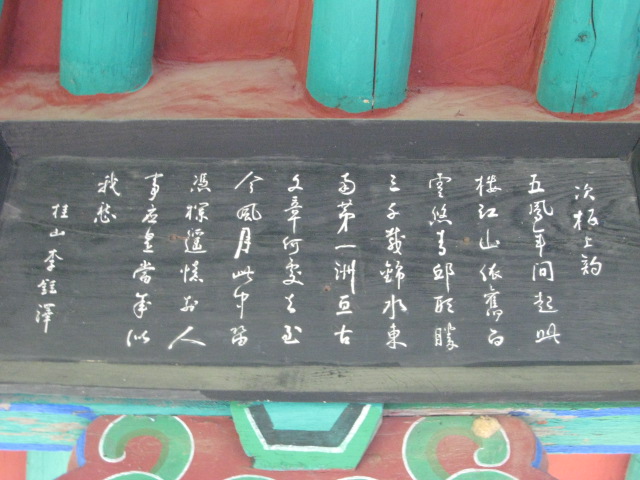 次板上韵
五鳳年间起此
樓江山依舊白
雲悠青邱形勝
三千載錦水東
南第一洲亘古
文章何處去至
今風月此中留
憑欄遙憶前人
事应是當年似
我愁
桂山 李澤